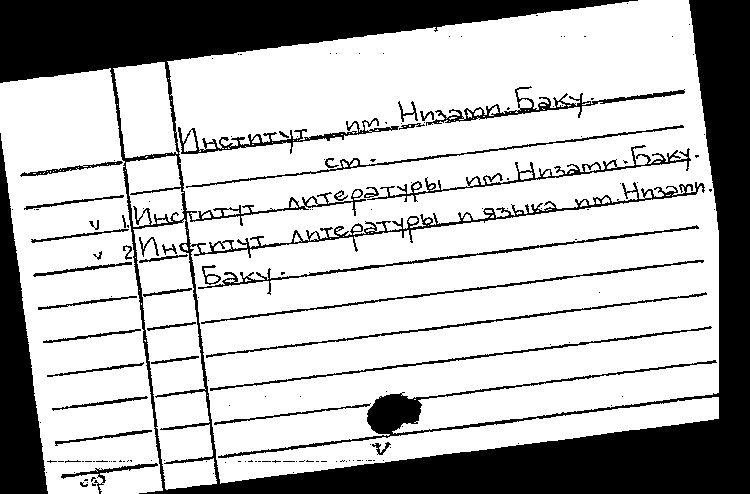 Институт им. Низами. Баку.
см.
v 1 Институт литературы им. Низами. Баку.
v 2 Институт литературы и языка им. Низами.
Баку.
v